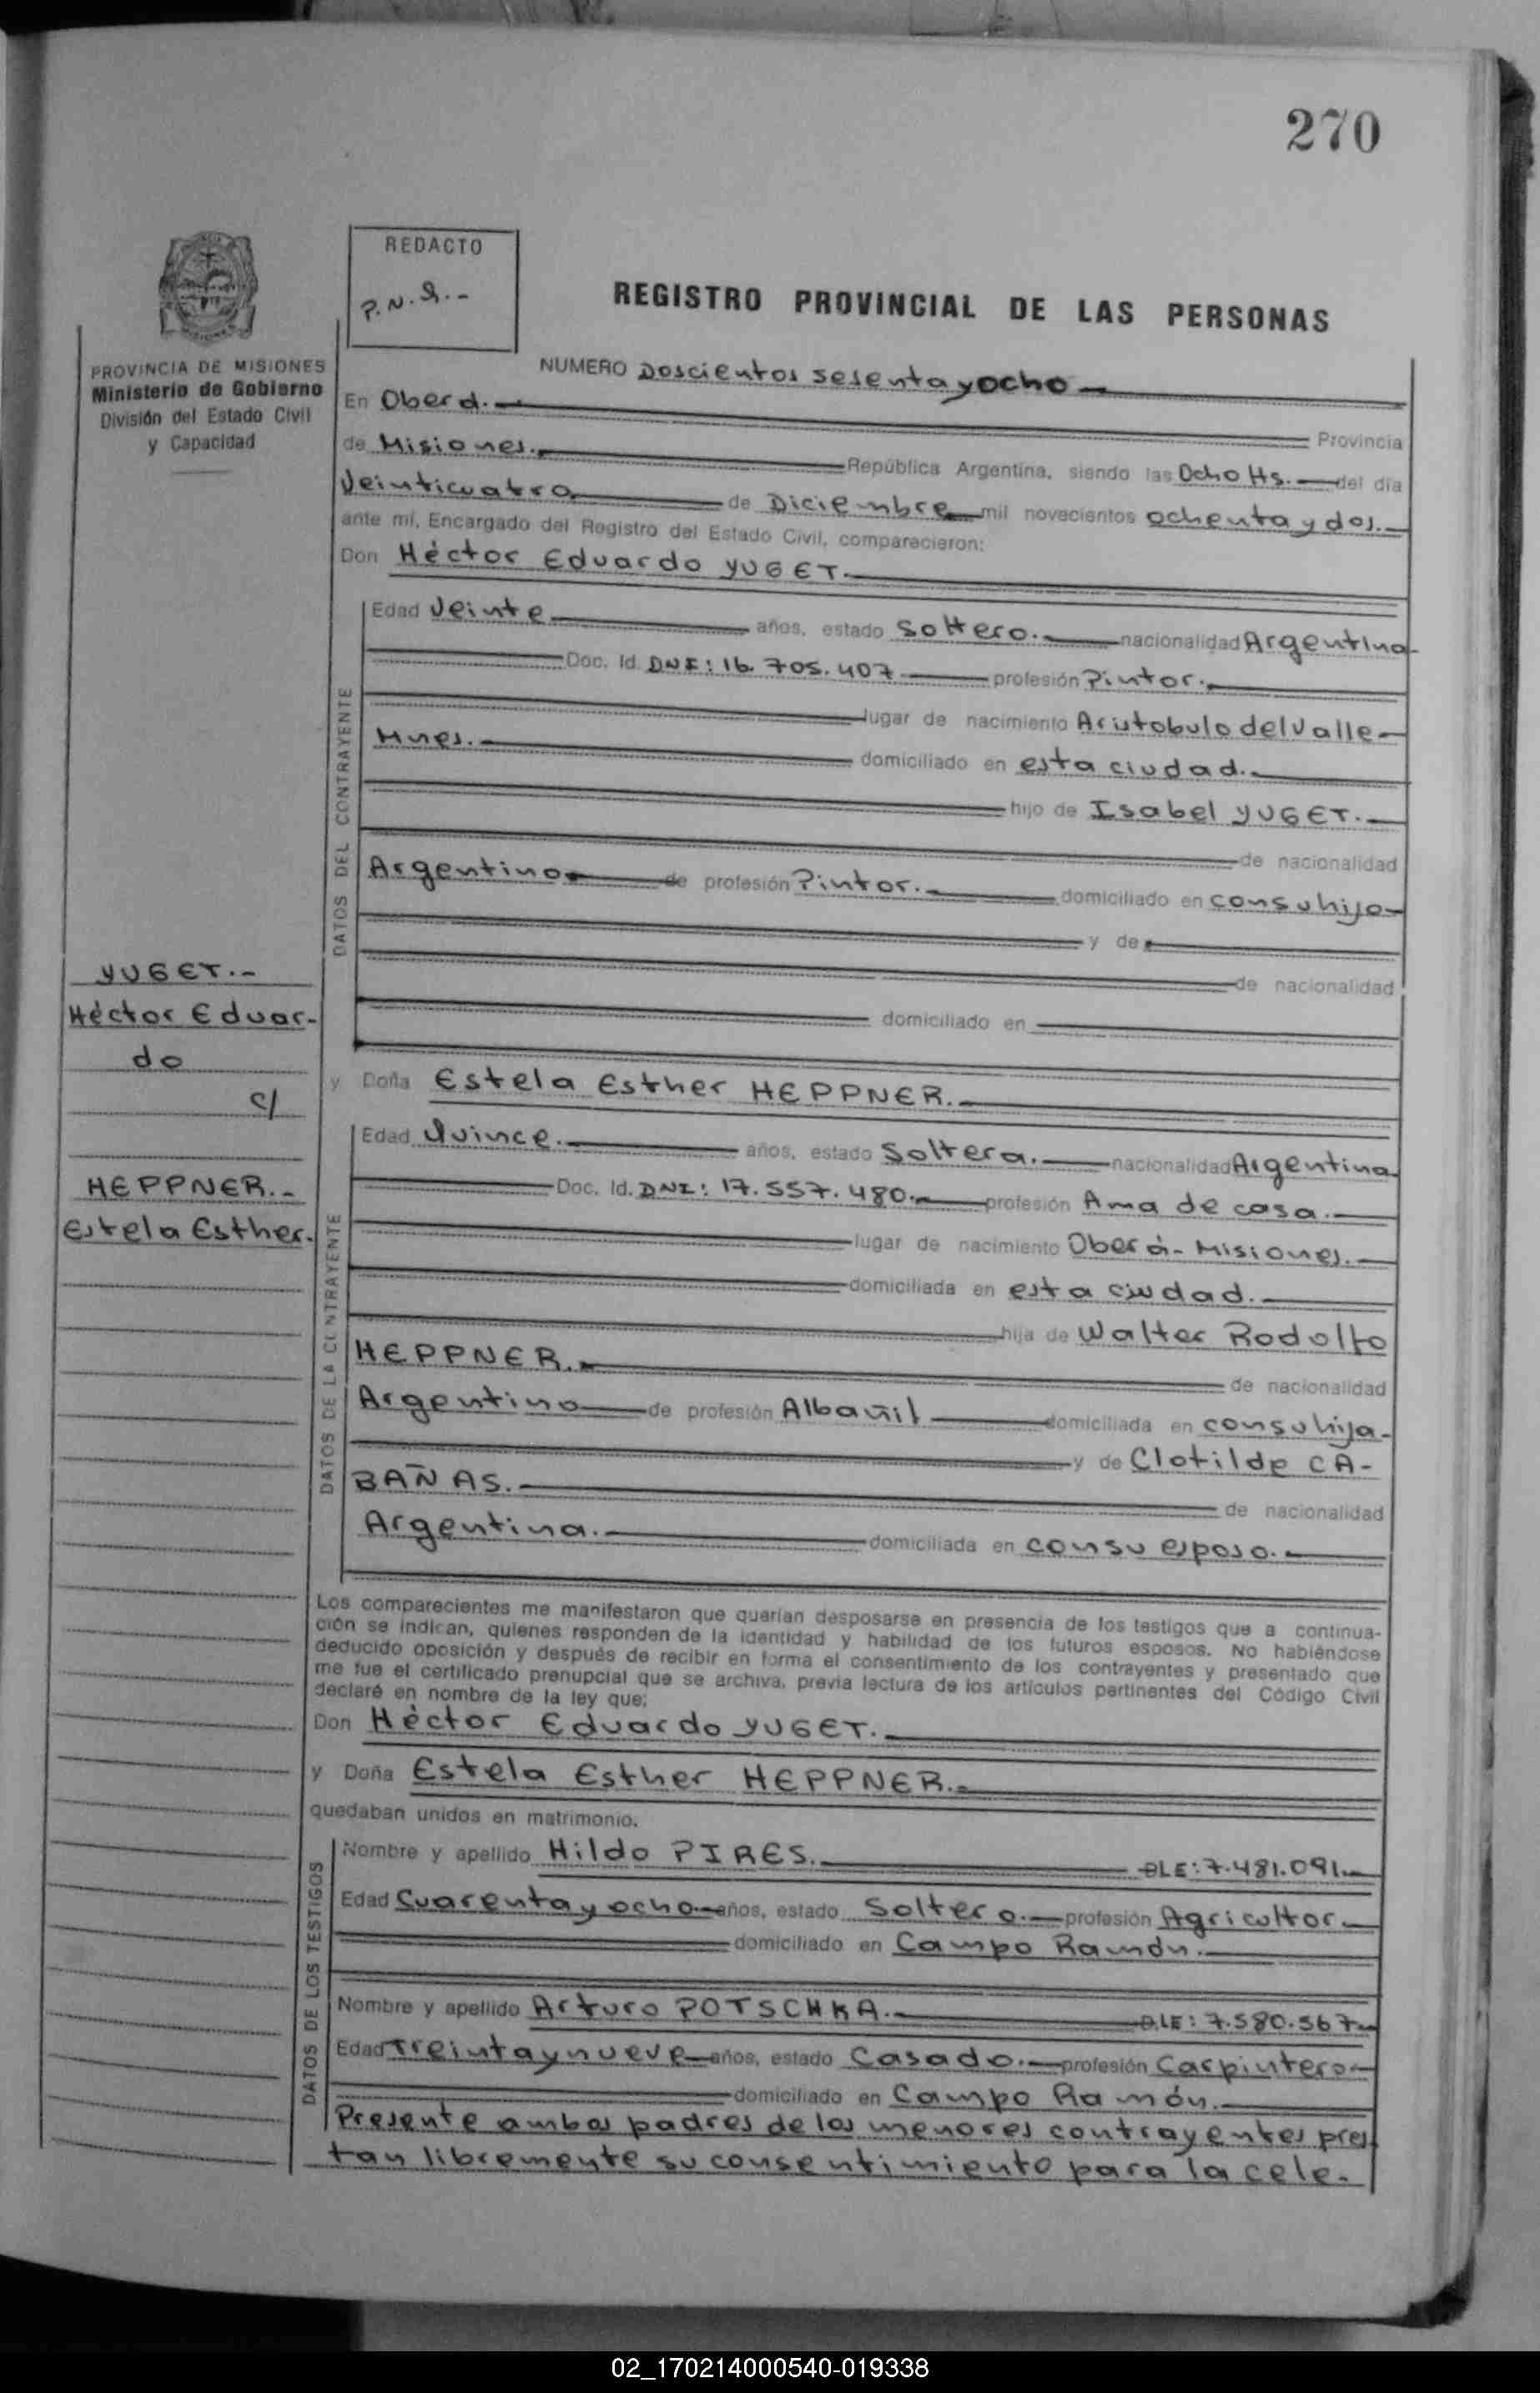 270
REDACTO
P.N.S.-
REGISTRO PROVINCIAL DE LAS PERSONAS
PROVINCIA DE MISIONES
Ministerio de Gobierno
División del Estado Civil
y Capacidad
NUMERO Doscientos sesenta y ocho
En Oberá.- Provincia
de Misiones. República Argentina, siendo las Ocho Hs. del día
Veinticuatro de Diciembre mil novecientos ochenta y dos.
ante mí, Encargado del Registro del Estado Civil, comparecieron:
Don Héctor Eduardo YUGET.
DATOS DEL CONTRAYENTE
Edad Veinte años, estado Soltero. nacionalidad Argentina
Doc. Id. DNI: 16.705.407 profesión Pintor.
lugar de nacimiento Aristobulo del Valle
Mnes. domiciliado en esta ciudad.
hijo de Isabel YUGET.
de nacionalidad
Argentino de profesión Pintor. domiciliado en con su hijo
y de
de nacionalidad
domiciliado en
YUGET.-
Héctor Eduar-
do
c/
HEPPNER.-
Estela Esther.
y Doña Estela Esther HEPPNER.
DATOS DE LA CONTRAYENTE
Edad Quince. años, estado Soltera. nacionalidad Argentina
Doc. Id. DNI: 17.557.480. profesión Ama de casa.
lugar de nacimiento Oberá - Misiones.
domiciliada en esta ciudad.
hija de Walter Rodolfo
HEPPNER. de nacionalidad
Argentino de profesión Albañil domiciliada en con su hija-
y de Clotilde CA-
BAÑAS. de nacionalidad
Argentina. domiciliada en con su esposo.
Los comparecientes me manifestaron que querían desposarse en presencia de los testigos que a continua-
ción se indican, quienes responden de la identidad y habilidad de los futuros esposos. No habiéndose
deducido oposición y después de recibir en forma el consentimiento de los contrayentes y presentado que
me fue el certificado prenupcial que se archiva, previa lectura de los artículos pertinentes del Código Civil
declaré en nombre de la ley que:
Don Héctor Eduardo YUGET.
y Doña Estela Esther HEPPNER.
quedaban unidos en matrimonio.
DATOS DE LOS TESTIGOS
Nombre y apellido Hildo PIRES. DLE: 7.481.091.
Edad Cuarenta y ocho años, estado Soltero. profesión Agricultor.
domiciliado en Campo Ramón.
Nombre y apellido Arturo POTSCHKA. D.LE: 7.580.567
Edad Treinta y nueve años, estado Casado. profesión Carpintero
domiciliado en Campo Ramón.
Presente ambos padres de los menores contrayentes pres
tan libremente su consentimiento para la cele-
02_170214000540-019338